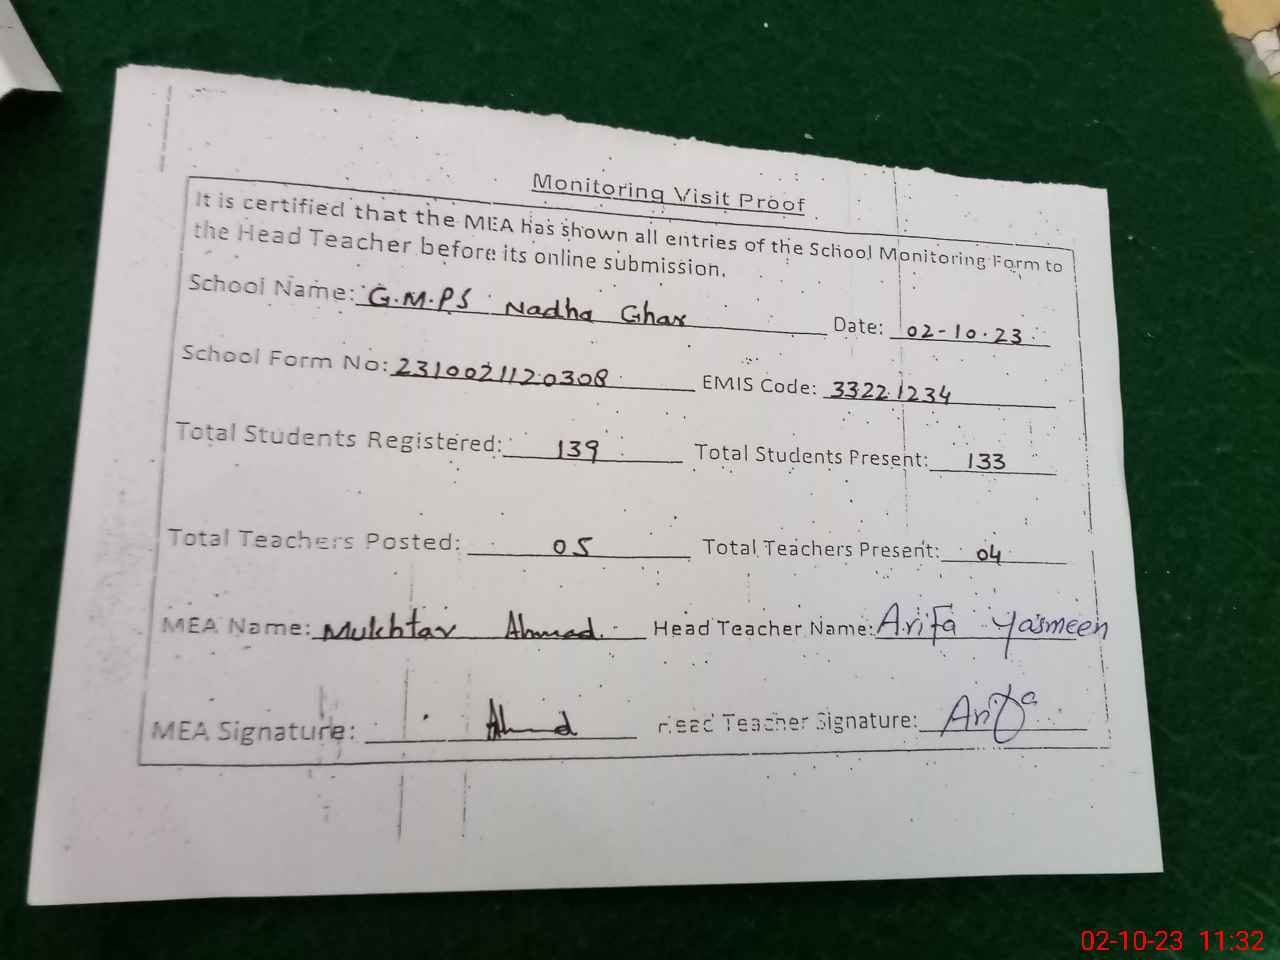 Monitoring Visit Proof
It is certified that the MEA has shown all entries of the School Monitoring Form to
the Head Teacher before its online submission.
School Name: G.M.PS Nadha Ghar Date: 02-10-23
School Form No: 2310021120308 EMIS Code: 33221234
Total Students Registered: 139 Total Students Present: 133
Total Teachers Posted: 05 Total Teachers Present: 04
MEA Name: Mukhtar Ahmad. Head Teacher Name: Arifa Yasmeen
MEA Signature: Ahmd Head Teacher Signature: Arifa
02-10-23 11:32